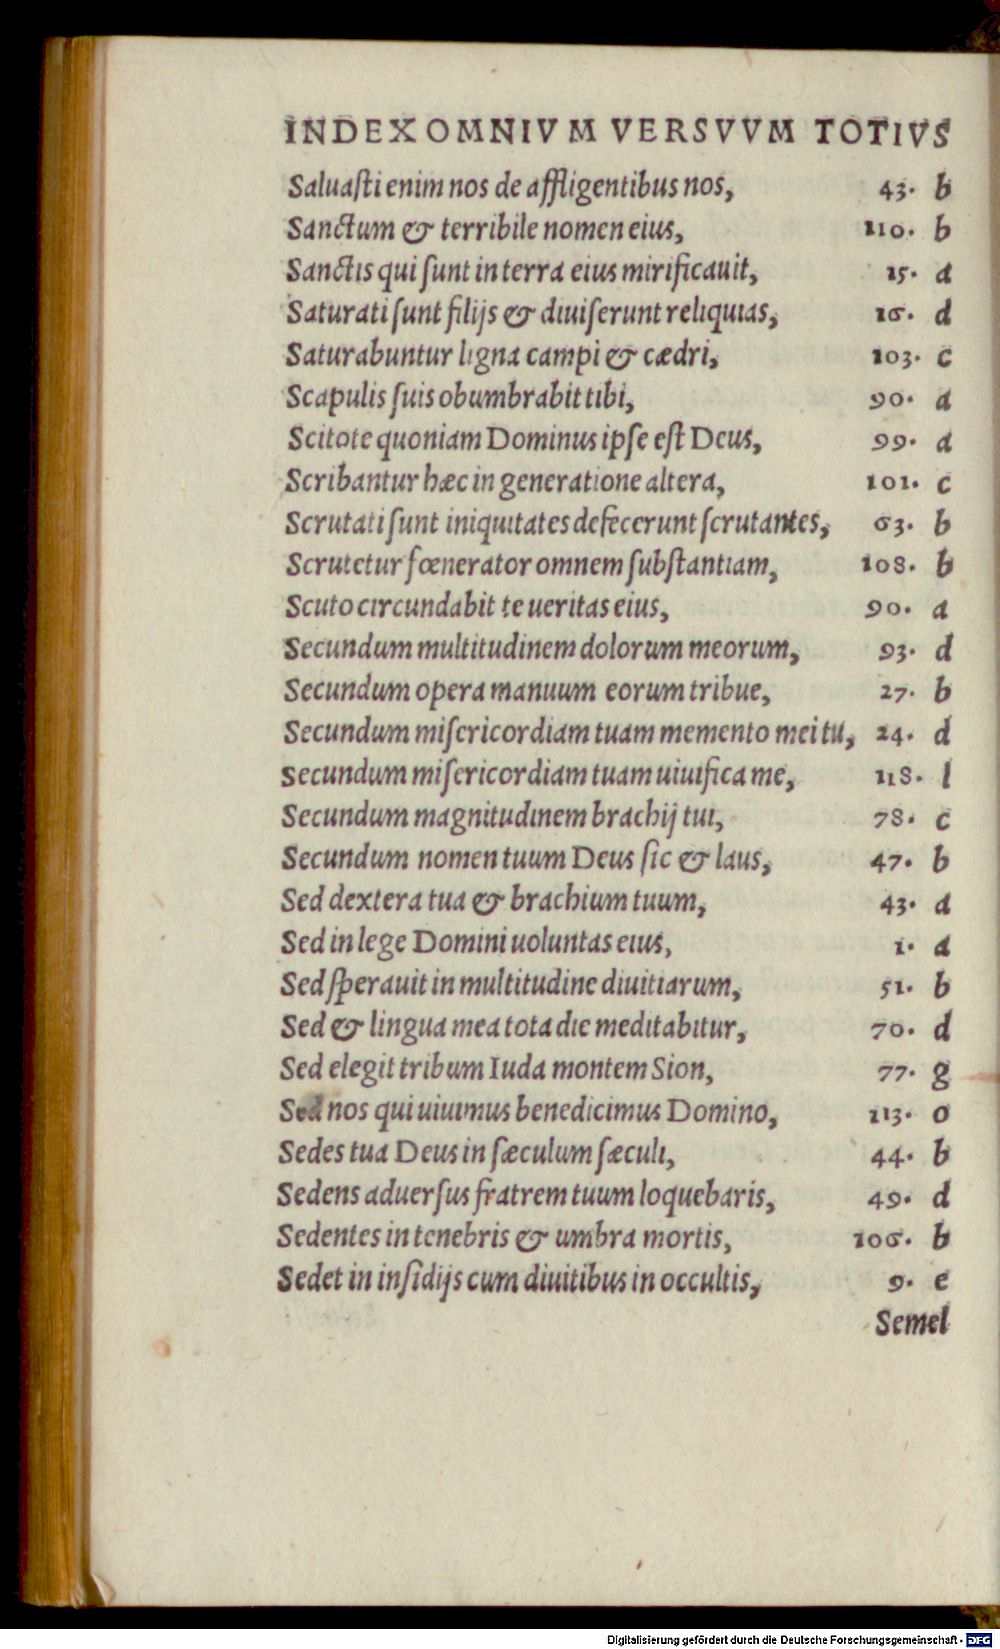 INDEX OMNIVM VERSVVM TOTIVS
Saluasti enim nos de affligentibus nos, 43. b
Sanctum & terribile nomen eius, 110. b
Sanctis qui sunt in terra eius mirificauit, 15. a
Saturati sunt filijs & diuiserunt reliquias, 16. d
Saturabuntur ligna campi & cædri, 103. c
Scapulis suis obumbrabit tibi, 90. a
Scitote quoniam Dominus ipse est Deus, 99. a
Scribantur hæc in generatione altera, 101. c
Scrutati sunt iniquitates defecerunt scrutantes, 63. b
Scrutetur fœnerator omnem substantiam, 108. b
Scuto circundabit te ueritas eius, 90. a
Secundum multitudinem dolorum meorum, 93. d
Secundum opera manuum eorum tribue, 27. b
Secundum misericordiam tuam memento mei tu, 24. d
Secundum misericordiam tuam uiuifica me, 118. l
Secundum magnitudinem brachij tui, 78. c
Secundum nomen tuum Deus sic & laus, 47. b
Sed dextera tua & brachium tuum, 43. a
Sed in lege Domini uoluntas eius, 1. a
Sed sperauit in multitudine diuitiarum, 51. b
Sed & lingua mea tota die meditabitur, 70. d
Sed elegit tribum Iuda montem Sion, 77. g
Sed nos qui uiuimus benedicimus Domino, 113. o
Sedes tua Deus in sæculum sæculi, 44. b
Sedens aduersus fratrem tuum loquebaris, 49. d
Sedentes in tenebris & umbra mortis, 106. b
Sedet in insidijs cum diuitibus in occultis, 9. e
Semel
Digitalisierung gefördert durch die Deutsche Forschungsgemeinschaft - DFG